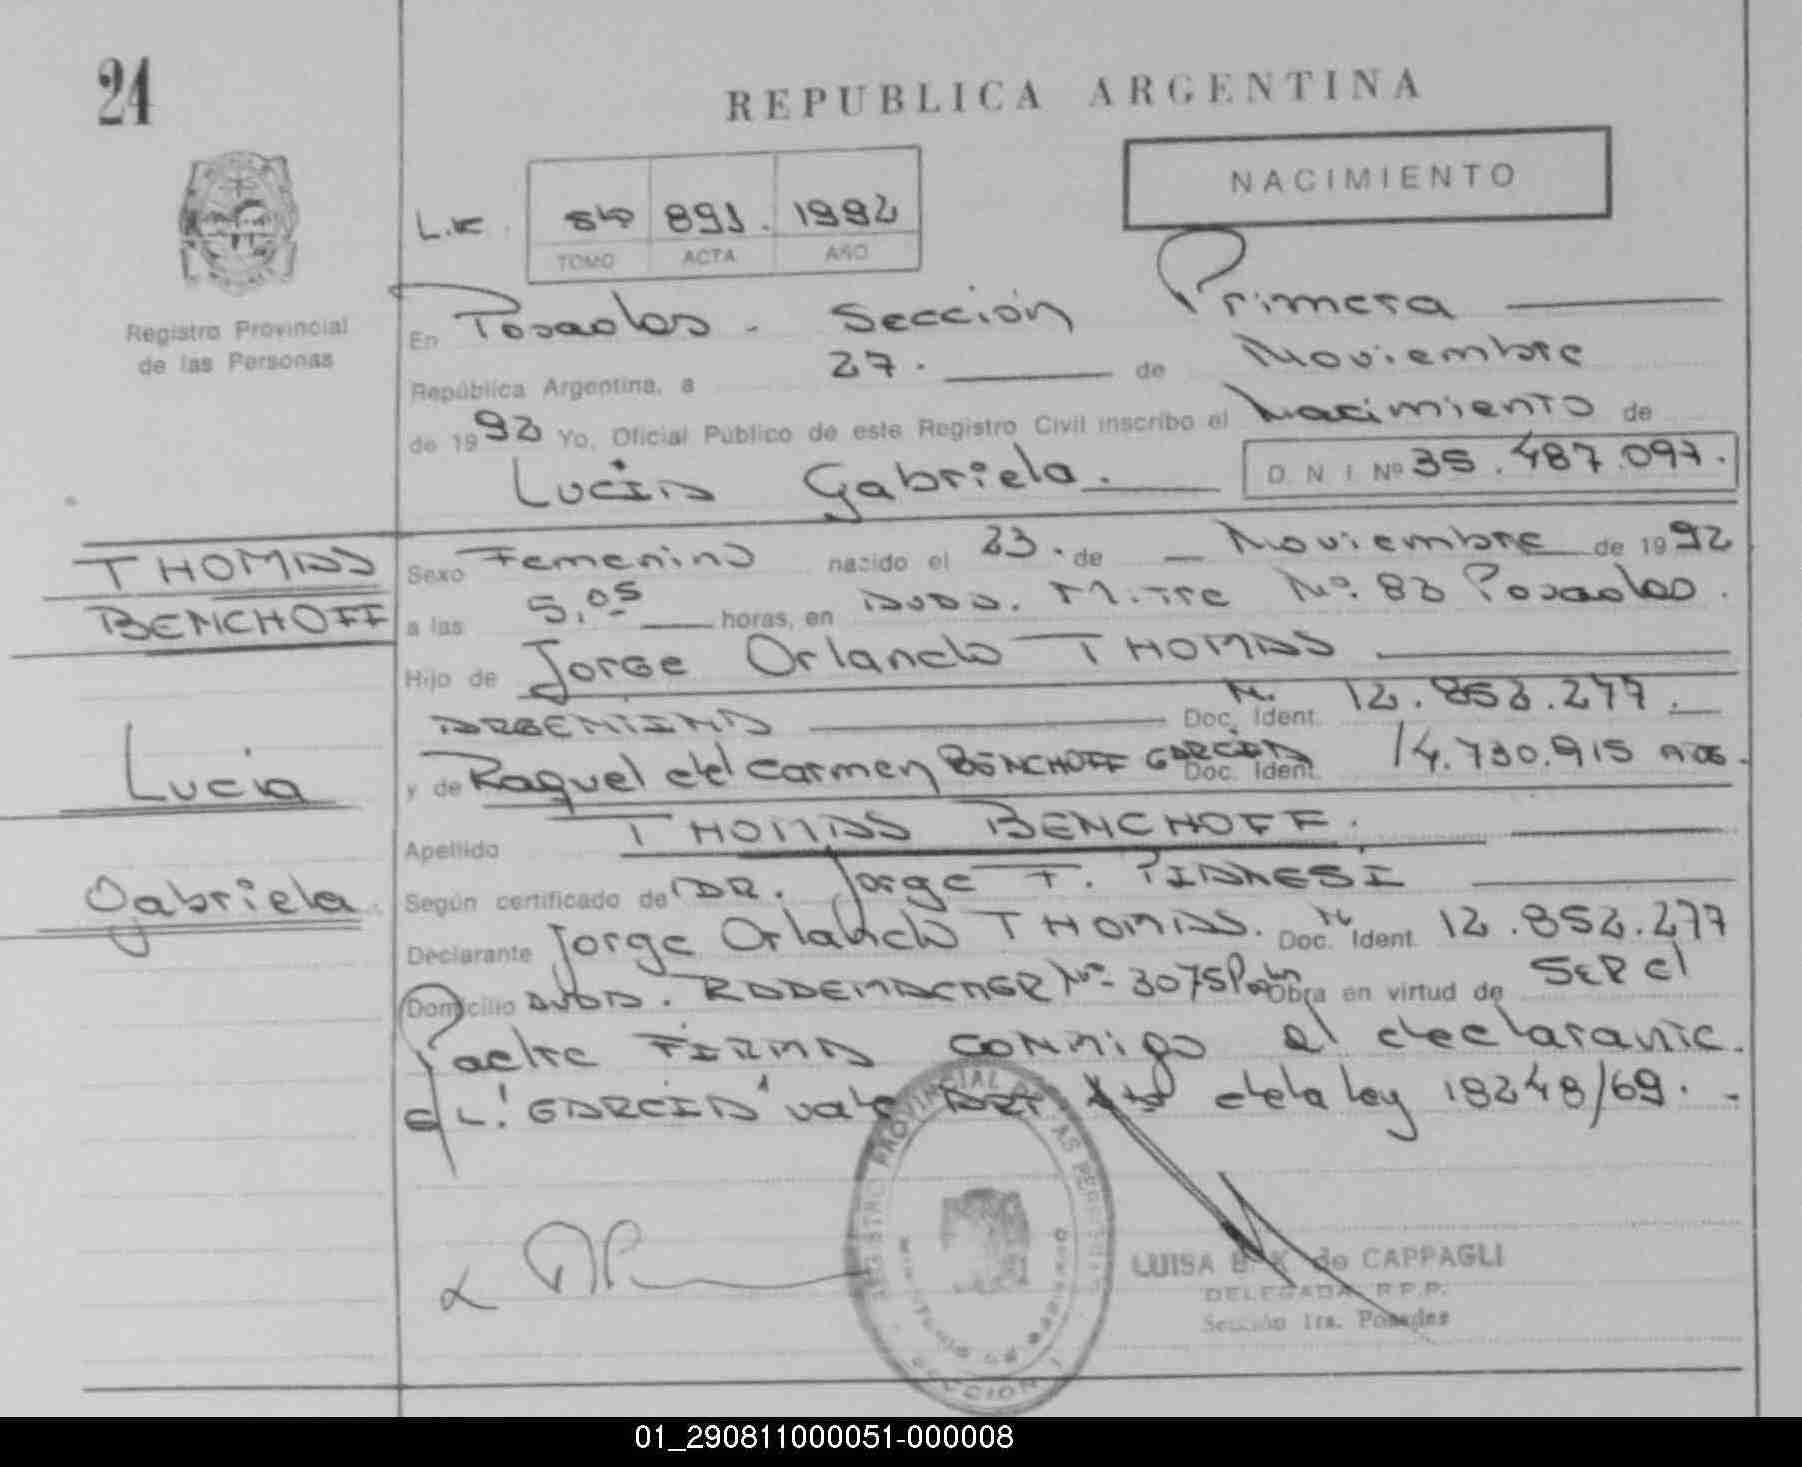 24
REPUBLICA ARGENTINA
NACIMIENTO
L.E. 5to 891. 1992
TOMO ACTA AÑO
Registro Provincial
de las Personas
En Posadas. Sección Primera
República Argentina, a 27. de Noviembre
de 1992 Yo, Oficial Público de este Registro Civil inscribo el Nacimiento de
Lucia Gabriela. D N I Nº 35.487.097.
THOMAS
BENCHOFF
Lucia
Gabriela
Sexo Femenino nacido el 23. de Noviembre de 1992
a las 5,05 horas, en Avda. Mitre Nº. 82 Posadas.
Hijo de Jorge Orlando THOMAS
ARGENTINA Doc. Ident. 12.852.277.
y de Raquel del Carmen BENCHOFF GARCIA Doc. Ident. 14.730.915
Apellido THOMAS BENCHOFF.
Según certificado de DR. Jorge F. PIANESI
Declarante Jorge Orlando THOMAS. Doc. Ident. 12.852.277
Domicilio AVDA. RADEMACHER Nº- 3075 Obra en virtud de SER el
Padre FIRMA conmigo el declarante.
E/L: "GARCIA" vale ART de la ley 18248/69.-
REGISTRO PROVINCIAL DE LAS PERSONAS
MINISTERIO DE GOBIERNO
SECCION 1
LUISA B. K. de CAPPAGLI
DELEGADA R.P.P.
Sección 1ra. Posadas
01_290811000051-000008